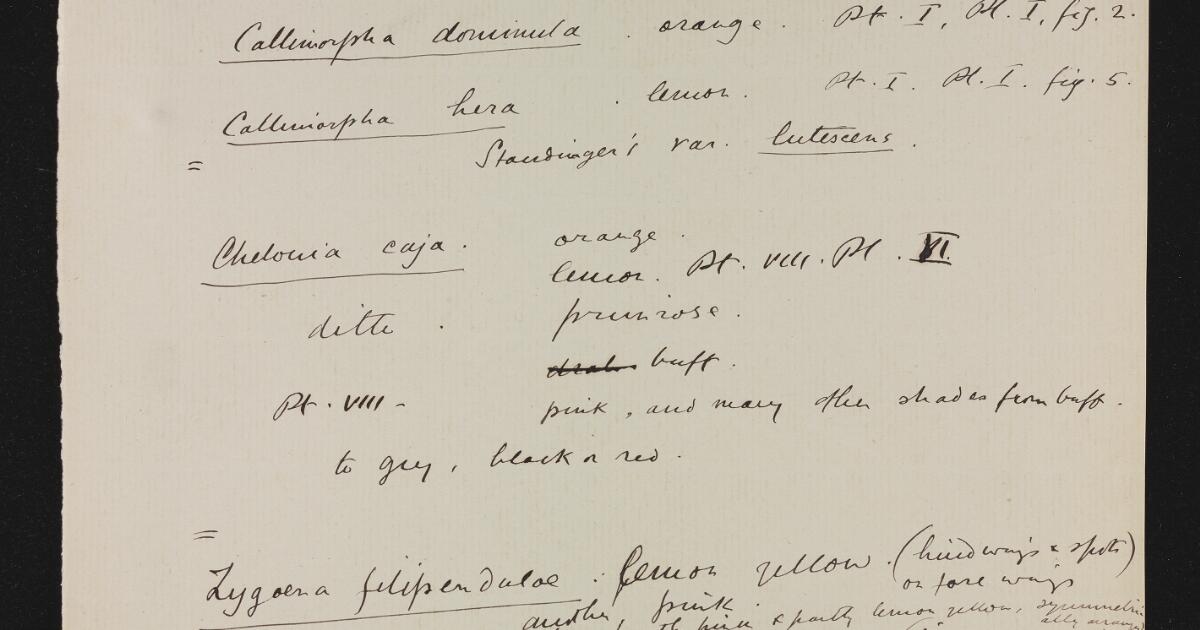 Callimorpha dominula . orange . Pt. I, Pl. I, fig. 2.
Callimorpha hera . lemon. Pt. I. Pl. I. fig. 5.
= Staudinger's var. lutescens.
Chelonia caja. orange.
lemon. Pt. VIII. Pl. VI.
ditto . primrose.
drab buff.
Pt. VIII - pink, and many other shades from buff.
to grey, black or red.
=
Zygaena filipendulae . lemon yellow. (hind wings & spots)
on fore wings
another, pink.
pink & partly lemon yellow, symmetric
ally arranged